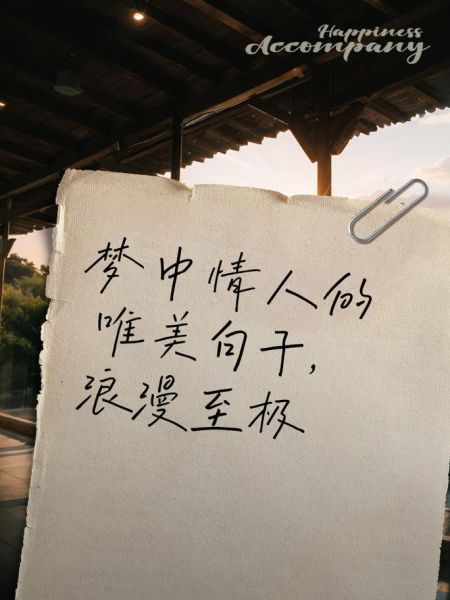 Happiness
Accompany
梦中情人的
唯美句子,
浪漫至极